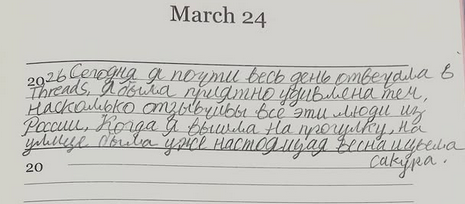 March 24
2026 Сегодня я почти весь день отвечала в
Threads, я была приятно удивлена тем,
насколько отзывчивы все эти люди из
России. Когда я вышла на прогулку, на
улице была уже настоящая весна и цвела
сакура.
20